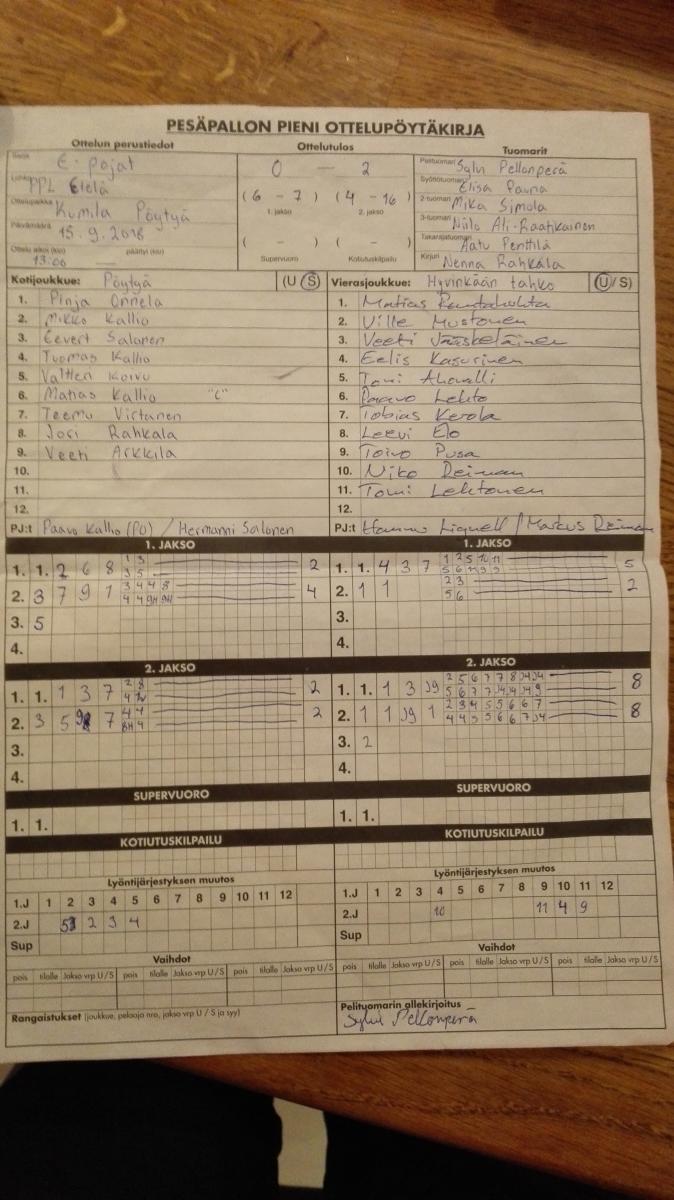 PESÄPALLON PIENI OTTELUPÖYTÄKIRJA
Ottelun perustiedot
Ottelutulos
Tuomarit
Sarja E-pojat
Lohko PPL Etelä
Ottelupaikka Kumila Pöytyä
Päivämäärä 15.9.2018
Ottelu alkoi (klo) päättyi (klo)
13:00 —
0 — 2
(6 - 7) (4 - 16)
1. jakso 2. jakso
( - ) ( - )
Supervuoro Kotiutuskilpailu
Pelituomari Sylvi Pellonperä
Syöttötuomari Elisa Pauna
2-tuomari Mika Simola
3-tuomari Niilo Ali-Raatikainen
Takarajatuomari Aatu Penttilä
Kirjuri Nenna Rahkala
Kotijoukkue: Pöytyä (U / S)
1. Pinja Onnela
2. Mikko Kallio
3. Eevert Salonen
4. Tuomas Kallio
5. Valtteri Koivu
6. Matias Kallio "C"
7. Teemu Virtanen
8. Jori Rahkala
9. Veeti Arkkila
10.
11.
12.
PJ:t Paavo Kallio (PO) / Hermanni Salonen
Vierasjoukkue: Hyvinkään tahko (U / S)
1. Matias Rantahohta
2. Ville Mustonen
3. Veeti Jääskeläinen
4. Eelis Kasurinen
5. Toni
6. Paavo Lehto
7. Tobias Kerola
8. Leevi Elo
9. Toivo Pusa
10. Niko Reiman
11. Tomi Lehtonen
12.
PJ:t Hannu Liquell / Markus Reiman
1. JAKSO
1. 1. 2 6 8 1 3 2
3 5
2. 3 7 9 1 3 4 4 8 4
4 4 9H 9H
3. 5
4.
1. JAKSO
1. 1. 4 3 7 1 2 5 10 11 5
5 6 11 9 9
2. 1 1 2 3 2
5 6
3.
4.
2. JAKSO
1. 1. 1 3 7 2 8 2
2. 3 5 7 4 4 2
8H 4
3.
4.
2. JAKSO
1. 1. 1 3 J9 2 5 6 7 7 8 J4 J4 8
5 6 7 7 J4 J4 J4 9
2. 1 1 J9 1 2 3 4 5 5 6 6 7 8
4 4 5 5 6 6 7 J4
3. 2
4.
SUPERVUORO
1. 1.
SUPERVUORO
1. 1.
KOTIUTUSKILPAILU
KOTIUTUSKILPAILU
Lyöntijärjestyksen muutos
1.J 1 2 3 4 5 6 7 8 9 10 11 12
2.J 5 2 3 4
Sup
Lyöntijärjestyksen muutos
1.J 1 2 3 4 5 6 7 8 9 10 11 12
2.J 10 11 4 9
Sup
Vaihdot
pois tilalle Jakso vrp U/S pois tilalle Jakso vrp U/S pois tilalle Jakso vrp U/S
Vaihdot
pois tilalle Jakso vrp U/S pois tilalle Jakso vrp U/S pois tilalle Jakso vrp U/S
Rangaistukset (joukkue, pelaaja nro, jakso vrp U / S ja syy)
Pelituomarin allekirjoitus
Sylvi Pellonperä